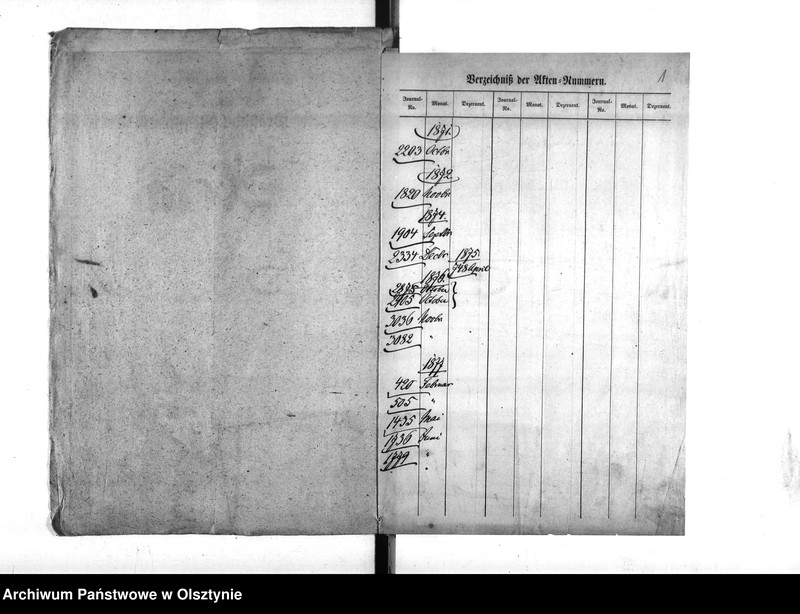 1
Verzeichniß der Akten-Nummern.
Journal-No. Monat. Dezernent. Journal-No. Monat. Dezernent. Journal-No. Monat. Dezernent.
1871.
2203 Octbr
1872.
1820 Novbr
1874.
1904 Septbr
2334 Decbr 1875.
748 April
1876.
2898 October
2905 October
3036 Novbr
3082 "
1877
420 Februar
505 "
1435 Mai
1736 Juni
1799 "
Archiwum Państwowe w Olsztynie